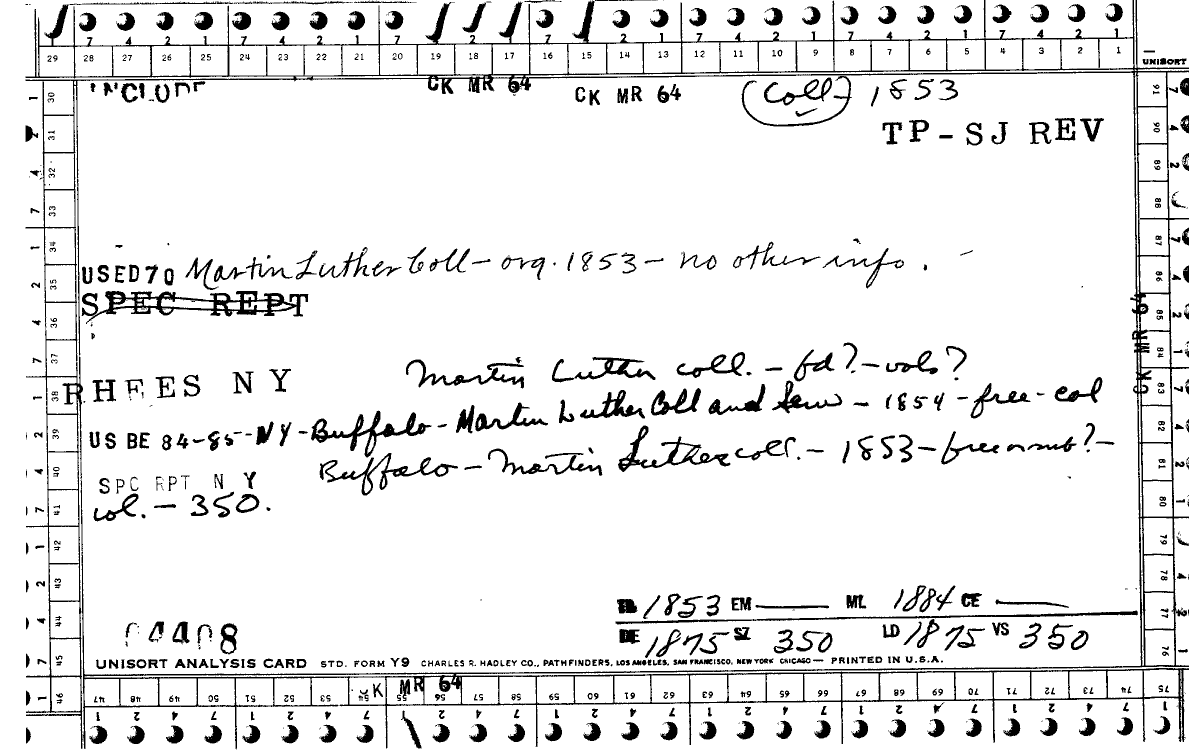 7 4 2 1 7 4 2 1 7 2 1 7 2 1 7 4 2 1 7 4 2 1 7 4 2 1
29 28 27 26 25 24 23 22 21 20 19 18 17 16 15 14 13 12 11 10 9 8 7 6 5 4 3 2 1 UNISORT
INCLUDE CK MR 64 CK MR 64 (Coll) 1853
TP-SJ REV
USED 70 Martin Luther Coll - org. 1853 - no other info.
SPEC REPT
RHEES NY Martin Luther coll. - fd? - vols?
US BE 84-85-NY-Buffalo-Martin Luther Coll and Sem - 1854 - free - col
SPC RPT N Y Buffalo - Martin Luther coll. - 1853 - free or sub? -
col. - 350.
CK MR 64
1853 EM ML 1884 CE
DE 1875 SZ 350 LD 1875 VS 350
04408
UNISORT ANALYSIS CARD STD. FORM Y9 CHARLES R. HADLEY CO., PATHFINDERS, LOS ANGELES, SAN FRANCISCO, NEW YORK CHICAGO — PRINTED IN U.S.A.
CK MR 64
47 48 49 50 51 52 53 54 55 56 57 58 59 60 61 62 63 64 65 66 67 68 69 70 71 72 73 74 75